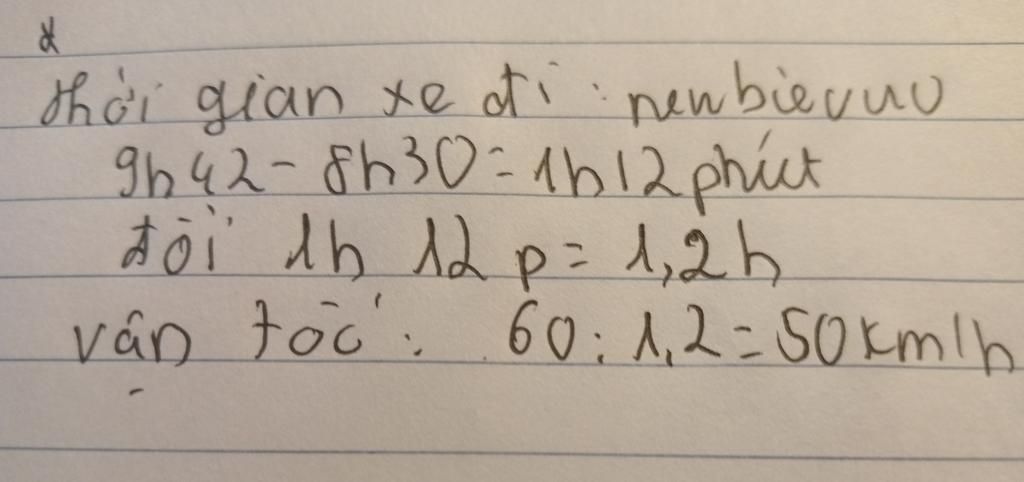 thời gian xe đi : newbievuv
9h42 - 8h30 = 1h12phút
đổi 1h 12 p = 1,2h
vận tốc : 60 : 1,2 = 50km/h